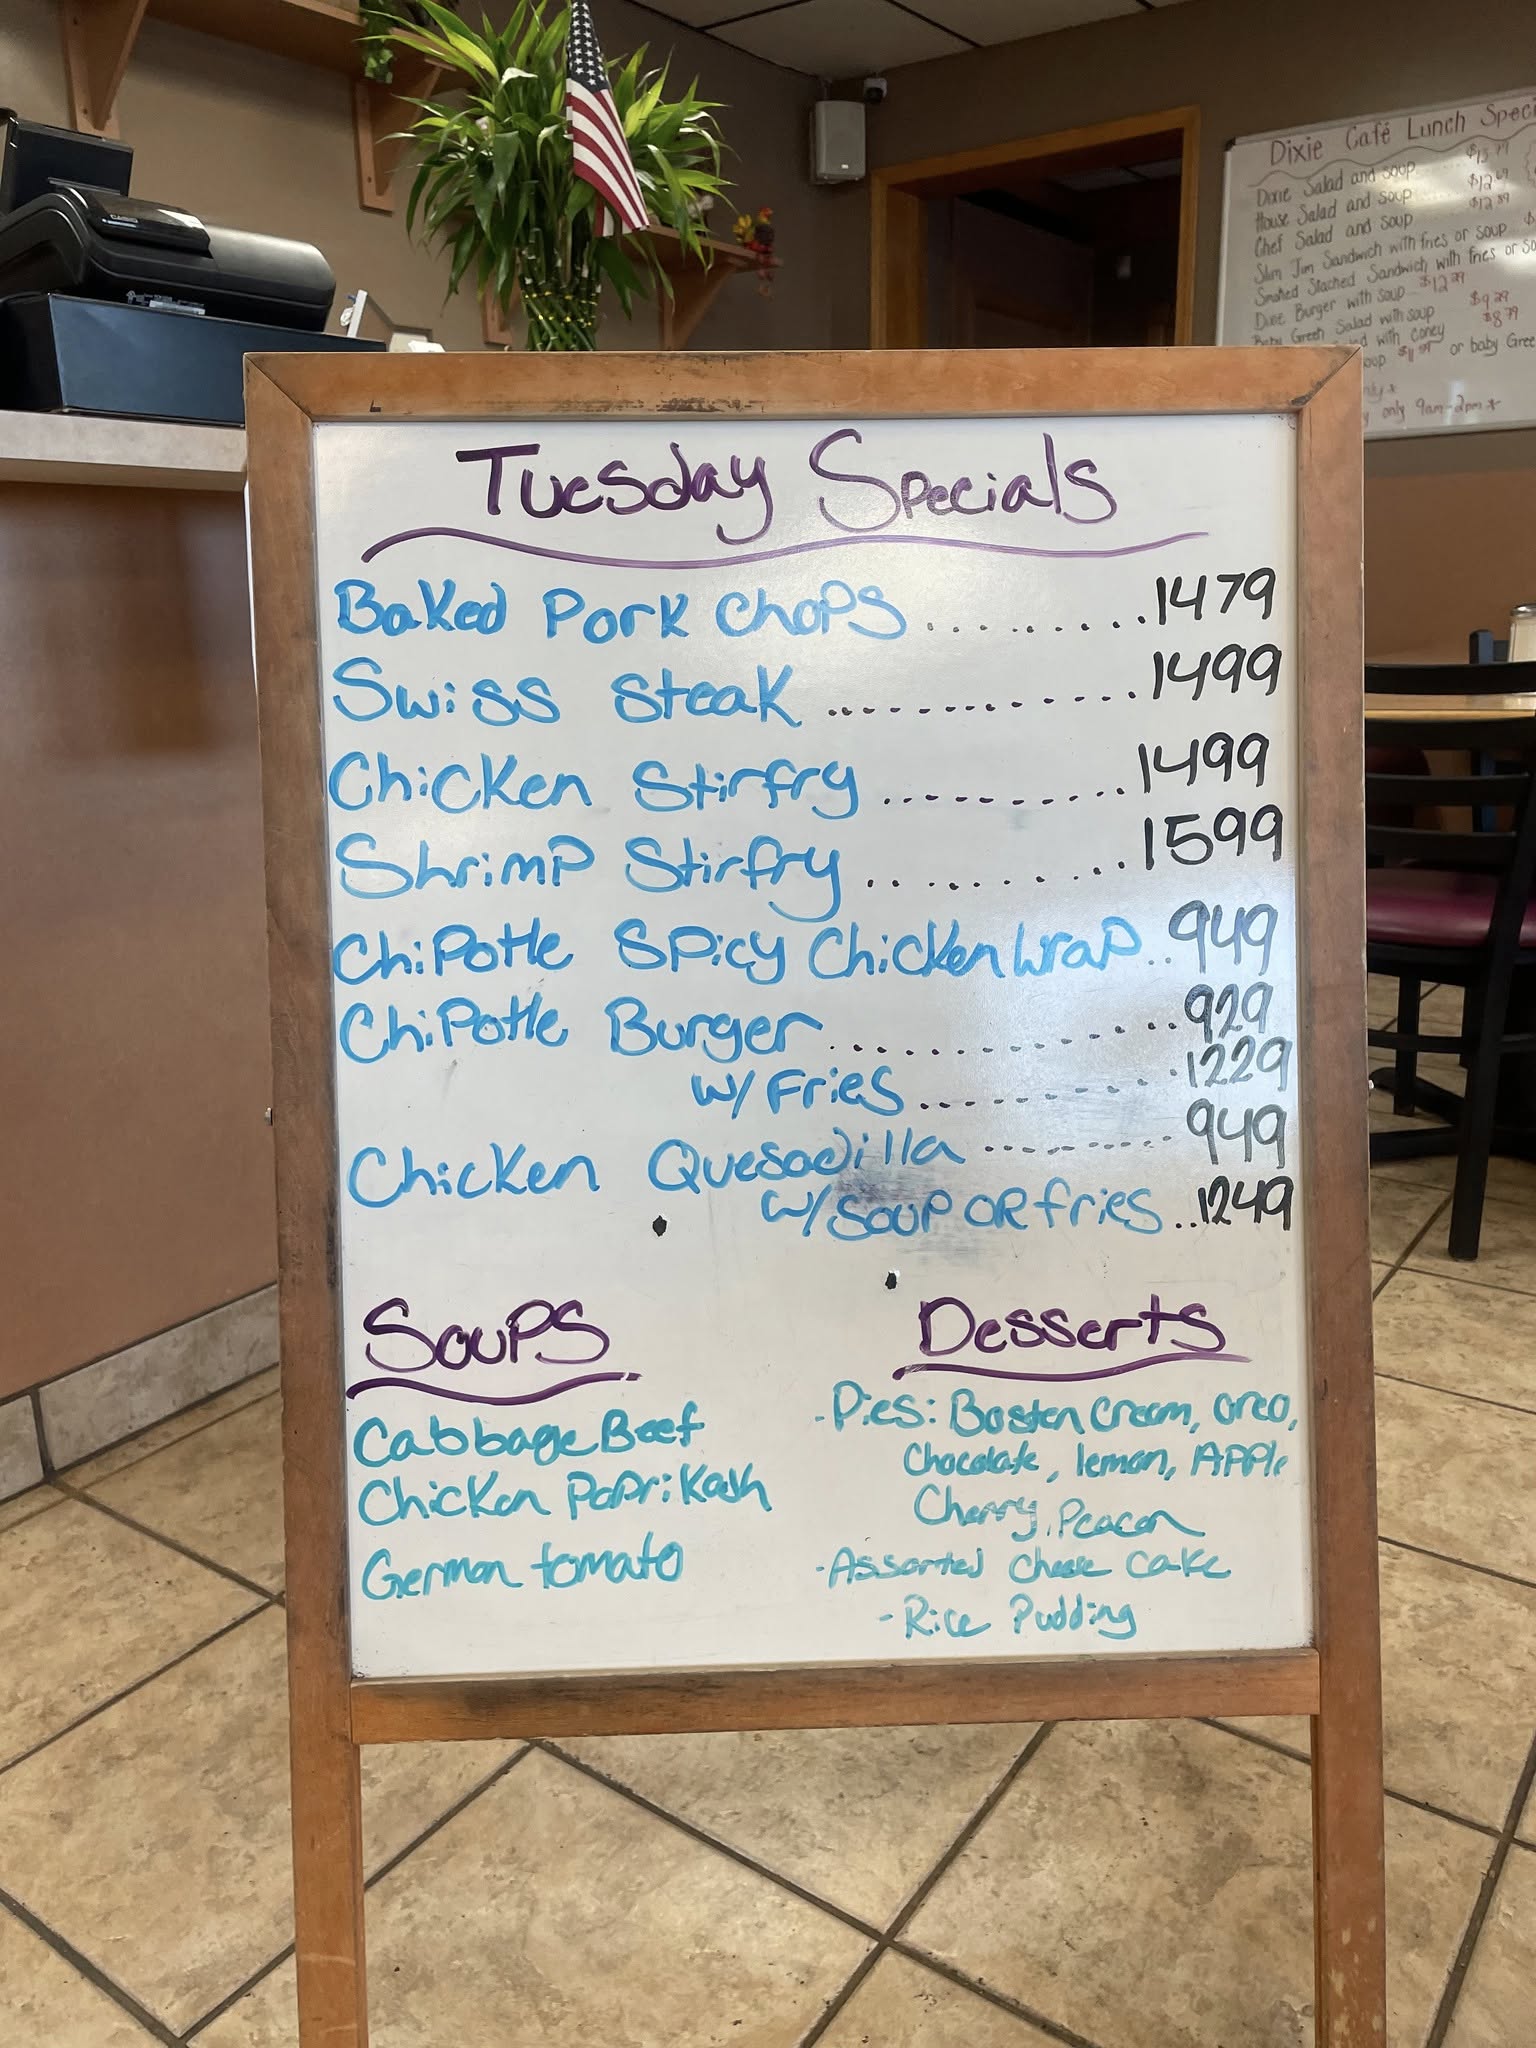 CASIO
Dixie Café Lunch Speci
Dixie Salad and soup
House Salad and soup $12
Chef Salad and soup $12
Slim Jim Sandwich with fries or soup
Smoked Stacked Sandwich with fries or so
Dixie Burger with soup $12
Baby Green Salad with soup $9
with coney $8
soup or baby Gree
only 9am-2pm *
Tuesday Specials
Baked Pork Chops .......... 1479
Swiss Steak ............. 1499
Chicken Stirfry .......... 1499
Shrimp Stirfry ......... 1599
Chipotle Spicy Chicken Wrap .. 949
Chipotle Burger ............. 929
w/ Fries .......... 1229
Chicken Quesadilla ......... 949
w/ soup OR fries .. 1249
Soups
Cabbage Beef
Chicken Paprikash
German tomato
Desserts
- Pies: Bosten Cream, oreo,
Chocolate, lemon, Apple
Cherry, Peacan
- Assorted Cheese Cake
- Rice Pudding